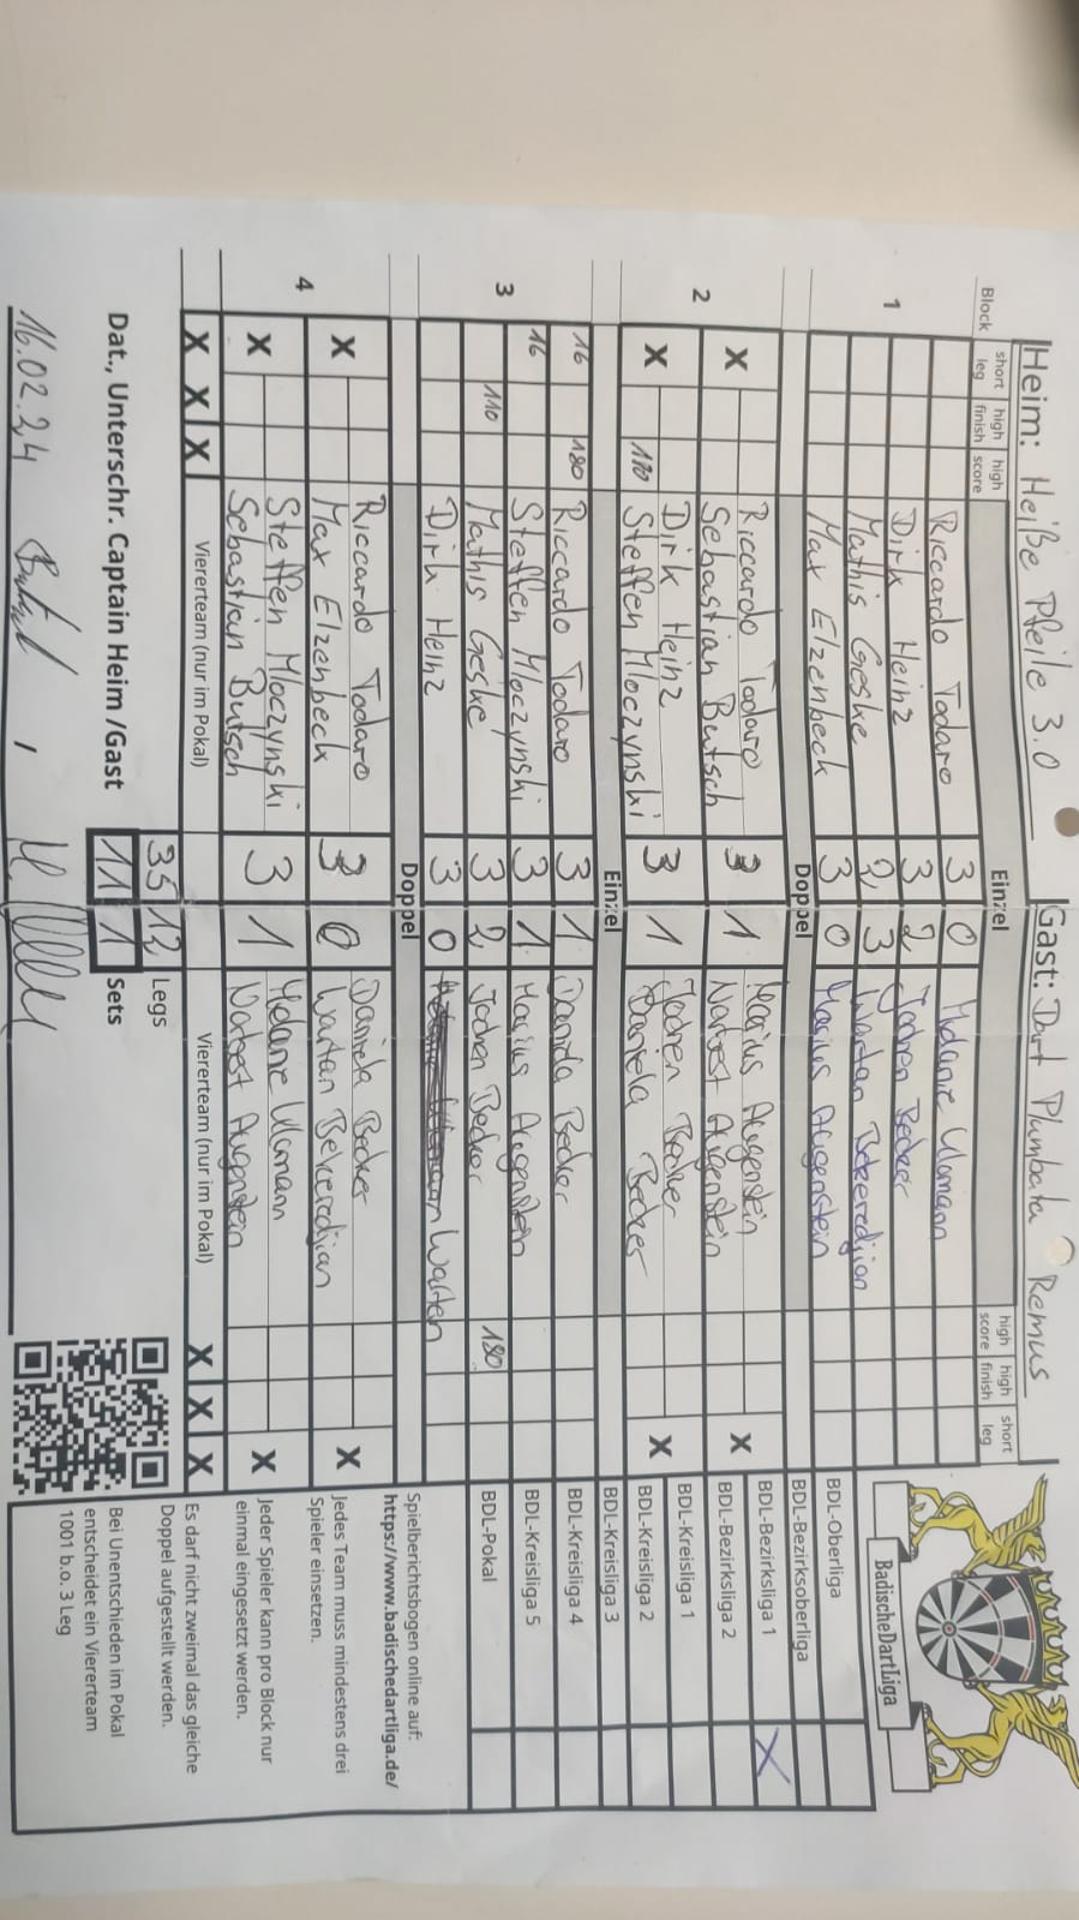 Heim: Heiße Pfeile 3.0 Gast: Dart Plumbata Remus
Block short leg high finish high score Einzel high score high finish short leg
1
Riccardo Todaro 3 0 Melanie Ulmann
Dirk Heinz 3 2 Jochen Becker
Mathis Geske 2 3 Wartan Bekeredjian
Max Elzenbeck 3 0 Marius Augenstein
Doppel
2
X Riccardo Todaro 3 1 Marius Augenstein X
Sebastian Butsch Norbert Augenstein
X Dirk Heinz 3 1 Jochen Becker X
Steffen Mloczynski Daniela Becker
Einzel
3
16 180 Riccardo Todaro 3 1 Daniela Becker
16 Steffen Mloczynski 3 1 Marius Augenstein
110 Mathis Geske 3 2 Jochen Becker 180
Dirk Heinz 3 0 Wartan
Doppel
4
X Riccardo Todaro 3 0 Daniela Becker X
Max Elzenbeck Wartan Bekeredjian
X Steffen Mloczynski 3 1 Melanie Ulmann X
Sebastian Butsch Norbert Augenstein
X X X Viererteam (nur im Pokal) Viererteam (nur im Pokal) X X X
35 12 Legs
Dat., Unterschr. Captain Heim /Gast 11 1 Sets
16.02.24
BadischeDartLiga
BDL-Oberliga
BDL-Bezirksoberliga
BDL-Bezirksliga 1 X
BDL-Bezirksliga 2
BDL-Kreisliga 1
BDL-Kreisliga 2
BDL-Kreisliga 3
BDL-Kreisliga 4
BDL-Kreisliga 5
BDL-Pokal
Spielberichtsbogen online auf:
https://www.badischedartliga.de/
Jedes Team muss mindestens drei
Spieler einsetzen.
Jeder Spieler kann pro Block nur
einmal eingesetzt werden.
Es darf nicht zweimal das gleiche
Doppel aufgestellt werden.
Bei Unentschieden im Pokal
entscheidet ein Viererteam
1001 b.o. 3 Leg